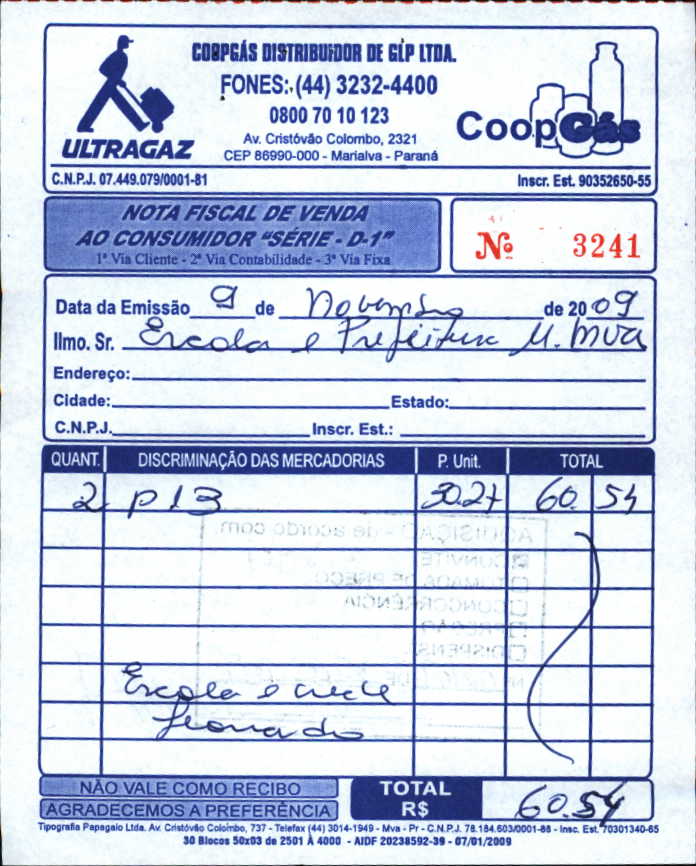 COOPGÁS DISTRIBUIDOR DE GLP LTDA.
FONES: (44) 3232-4400
0800 70 10 123
Av. Cristóvão Colombo, 2321
CEP 86990-000 - Marialva - Paraná
ULTRAGAZ
CoopGás
C.N.P.J. 07.449.079/0001-81 Inscr. Est. 90352650-55
NOTA FISCAL DE VENDA
AO CONSUMIDOR "SÉRIE - D-1"
1ª Via Cliente - 2ª Via Contabilidade - 3ª Via Fixa
Nº 3241
Data da Emissão 9 de Novembro de 2009
Ilmo. Sr. Escola e Prefeitura M. Mva
Endereço:
Cidade: Estado:
C.N.P.J. Inscr. Est.:
QUANT. DISCRIMINAÇÃO DAS MERCADORIAS P. Unit. TOTAL
2 P13 30.27 60.54
AQUISIÇÃO - de acordo com:
CONVITE
TOMADA DE PREÇO
CONCORRÊNCIA
PREGÃO
DISPENSA
Escola e
Leonardo
NÃO VALE COMO RECIBO
AGRADECEMOS A PREFERÊNCIA
TOTAL R$ 60.54
Tipografia Papagaio Ltda. Av. Cristóvão Colombo, 737 - Telefax (44) 3014-1949 - Mva - Pr - C.N.P.J. 78.184.603/0001-88 - Insc. Est. 70301340-65
30 Blocos 50x03 de 2501 À 4000 - AIDF 20238592-39 - 07/01/2009